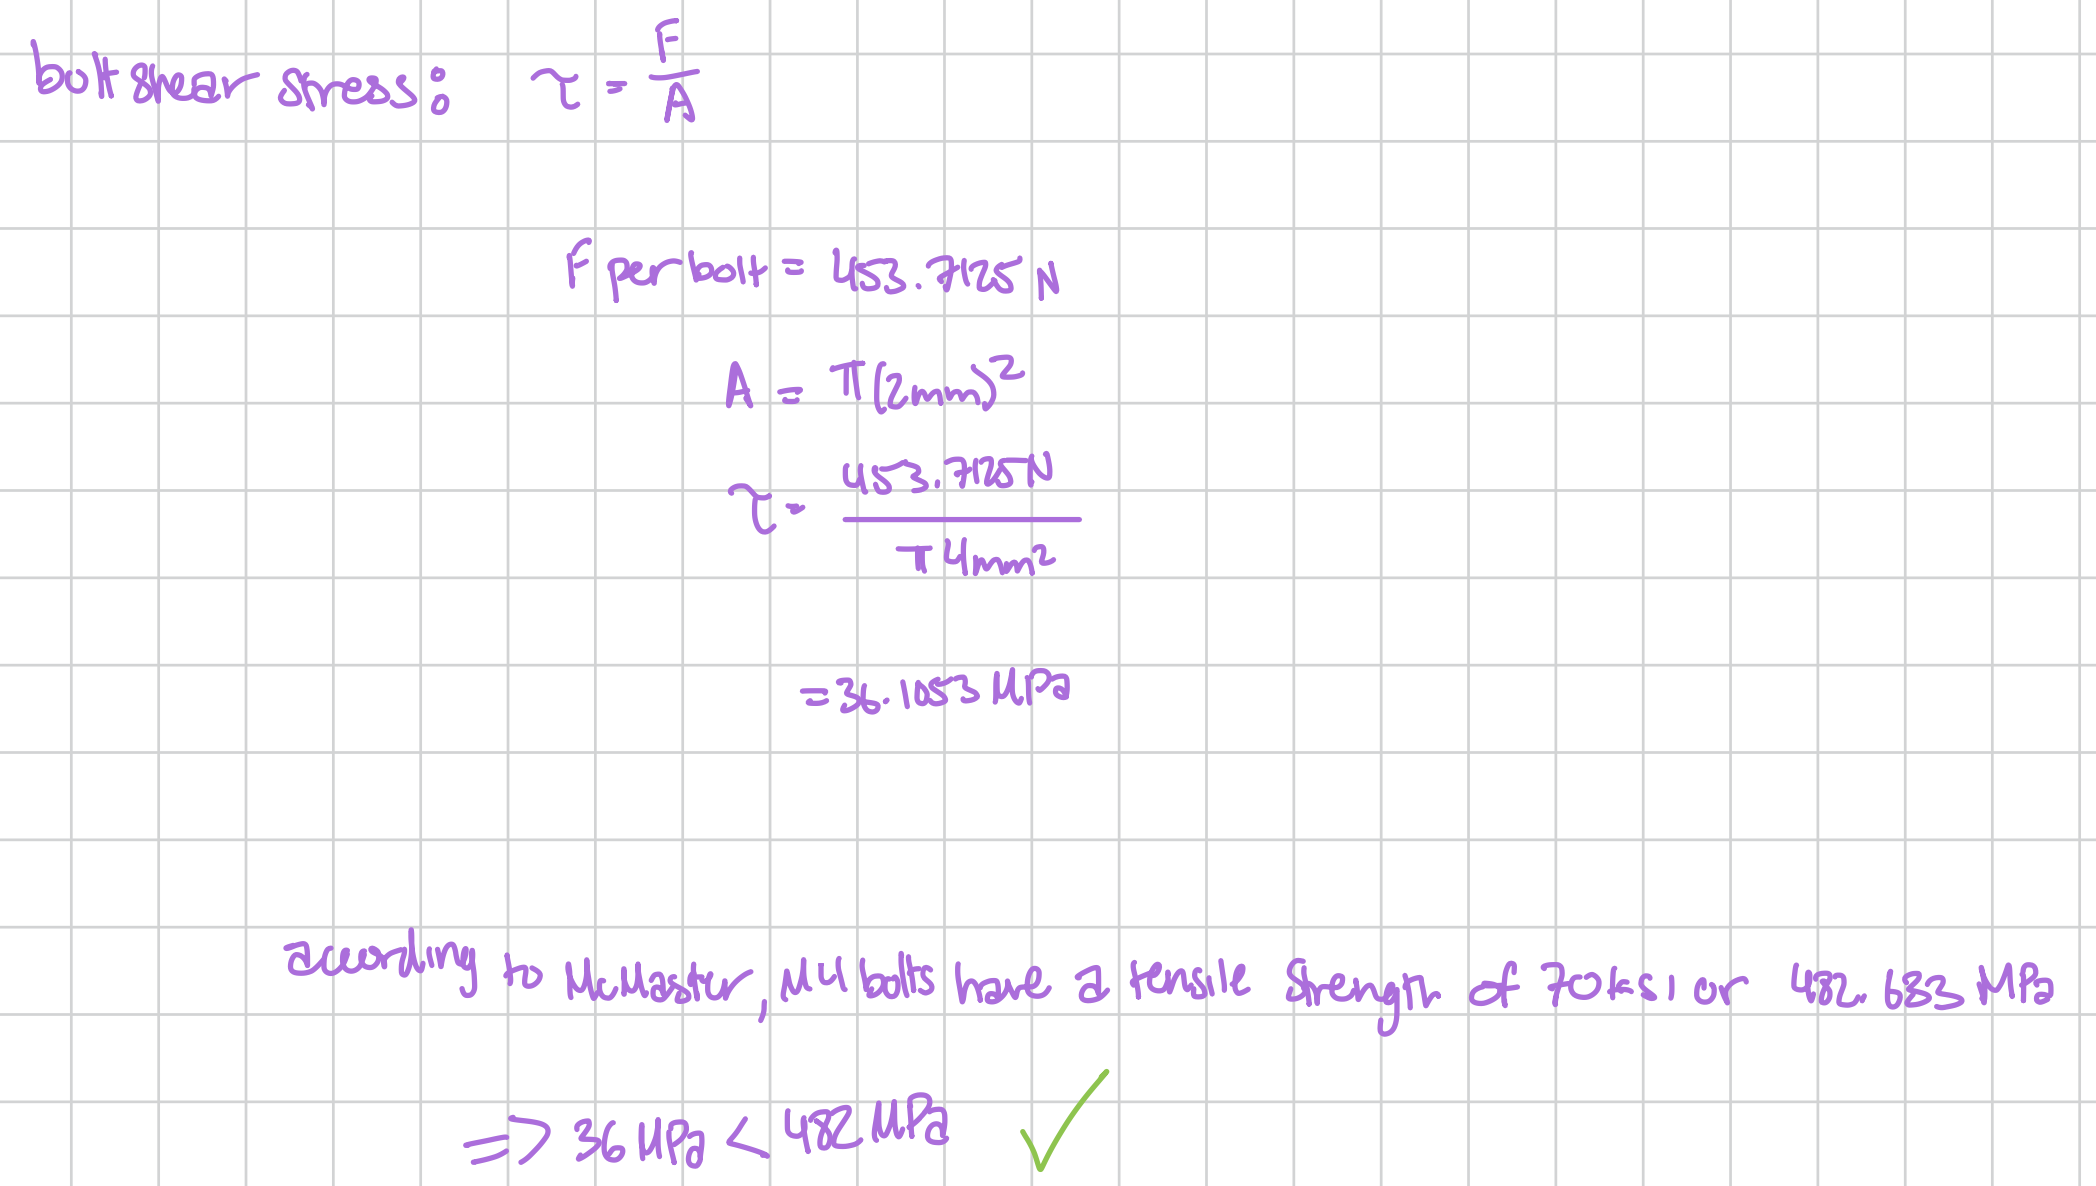 bolt shear stress: τ = F/A
F per bolt = 453.7125 N
A = π(2mm)²
τ = 453.7125N / π4mm²
= 36.1053 MPa
according to McMaster, M4 bolts have a tensile strength of 70ksi or 482.633 MPa
⇒ 36 MPa < 482 MPa ✓